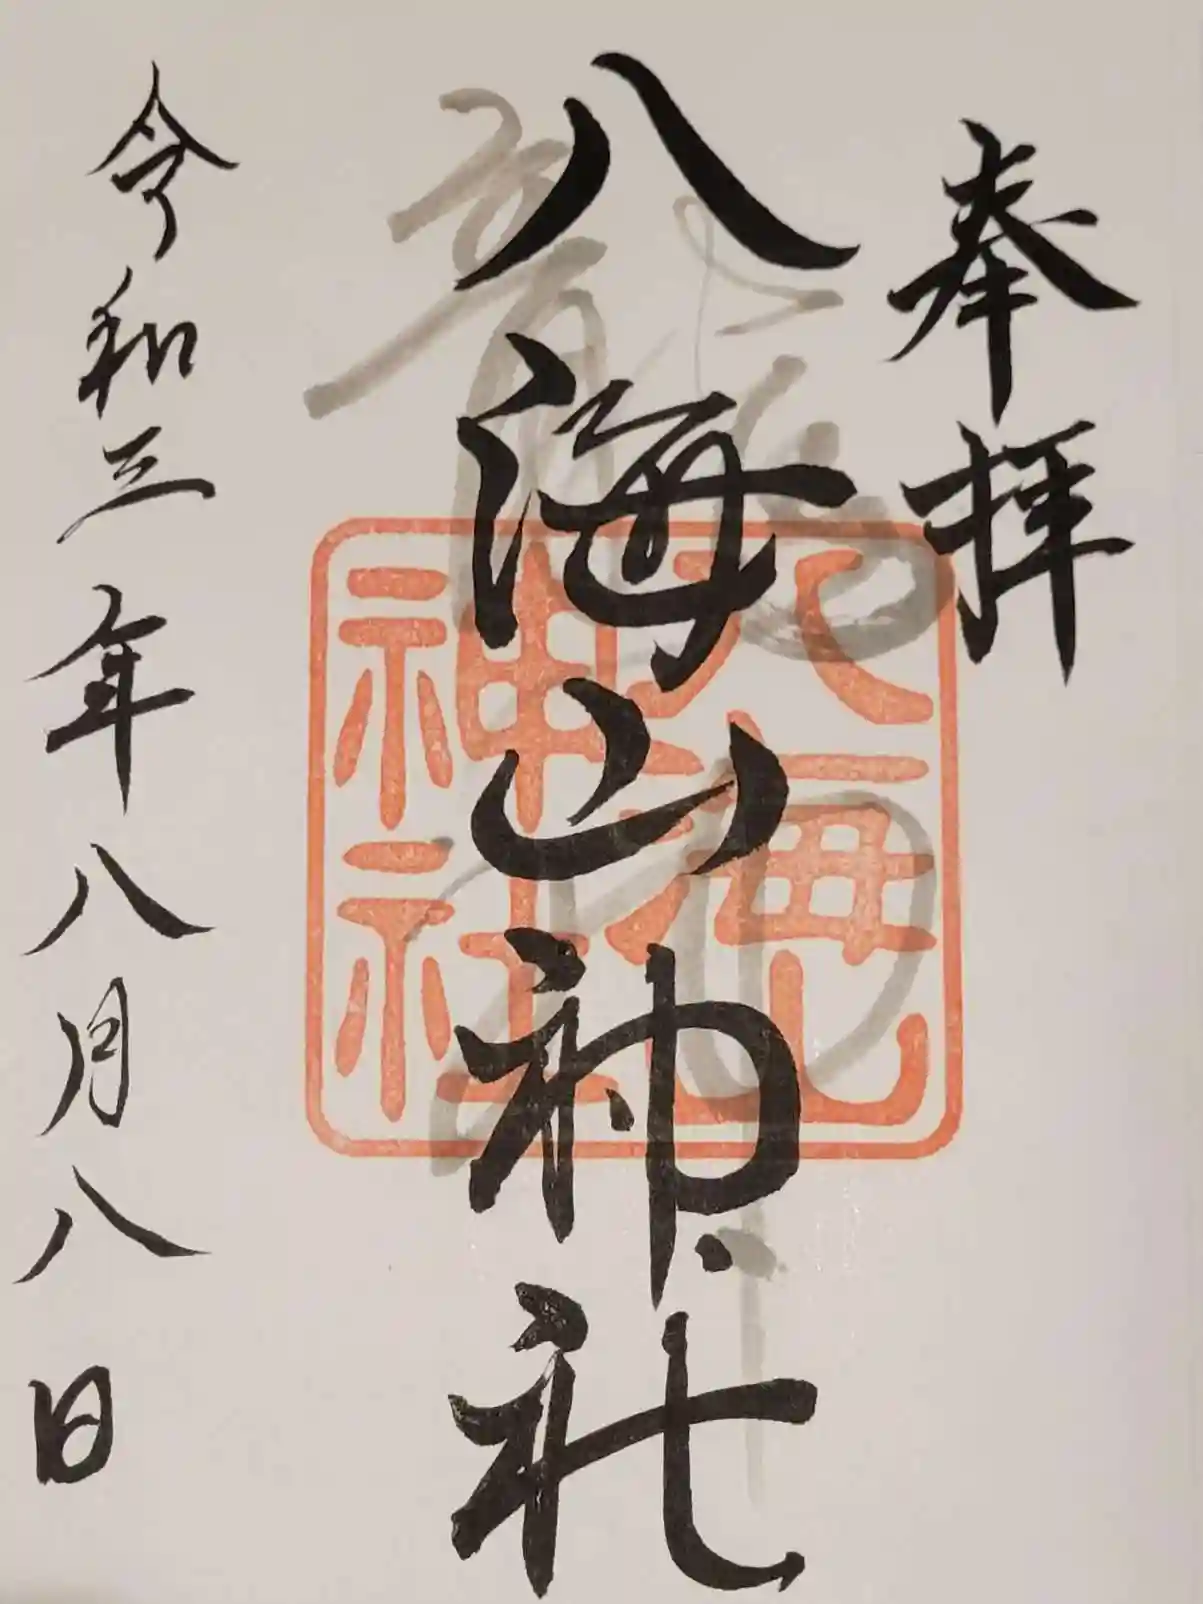 奉拝
八海山神社
八海
神社
令和三年八月八日